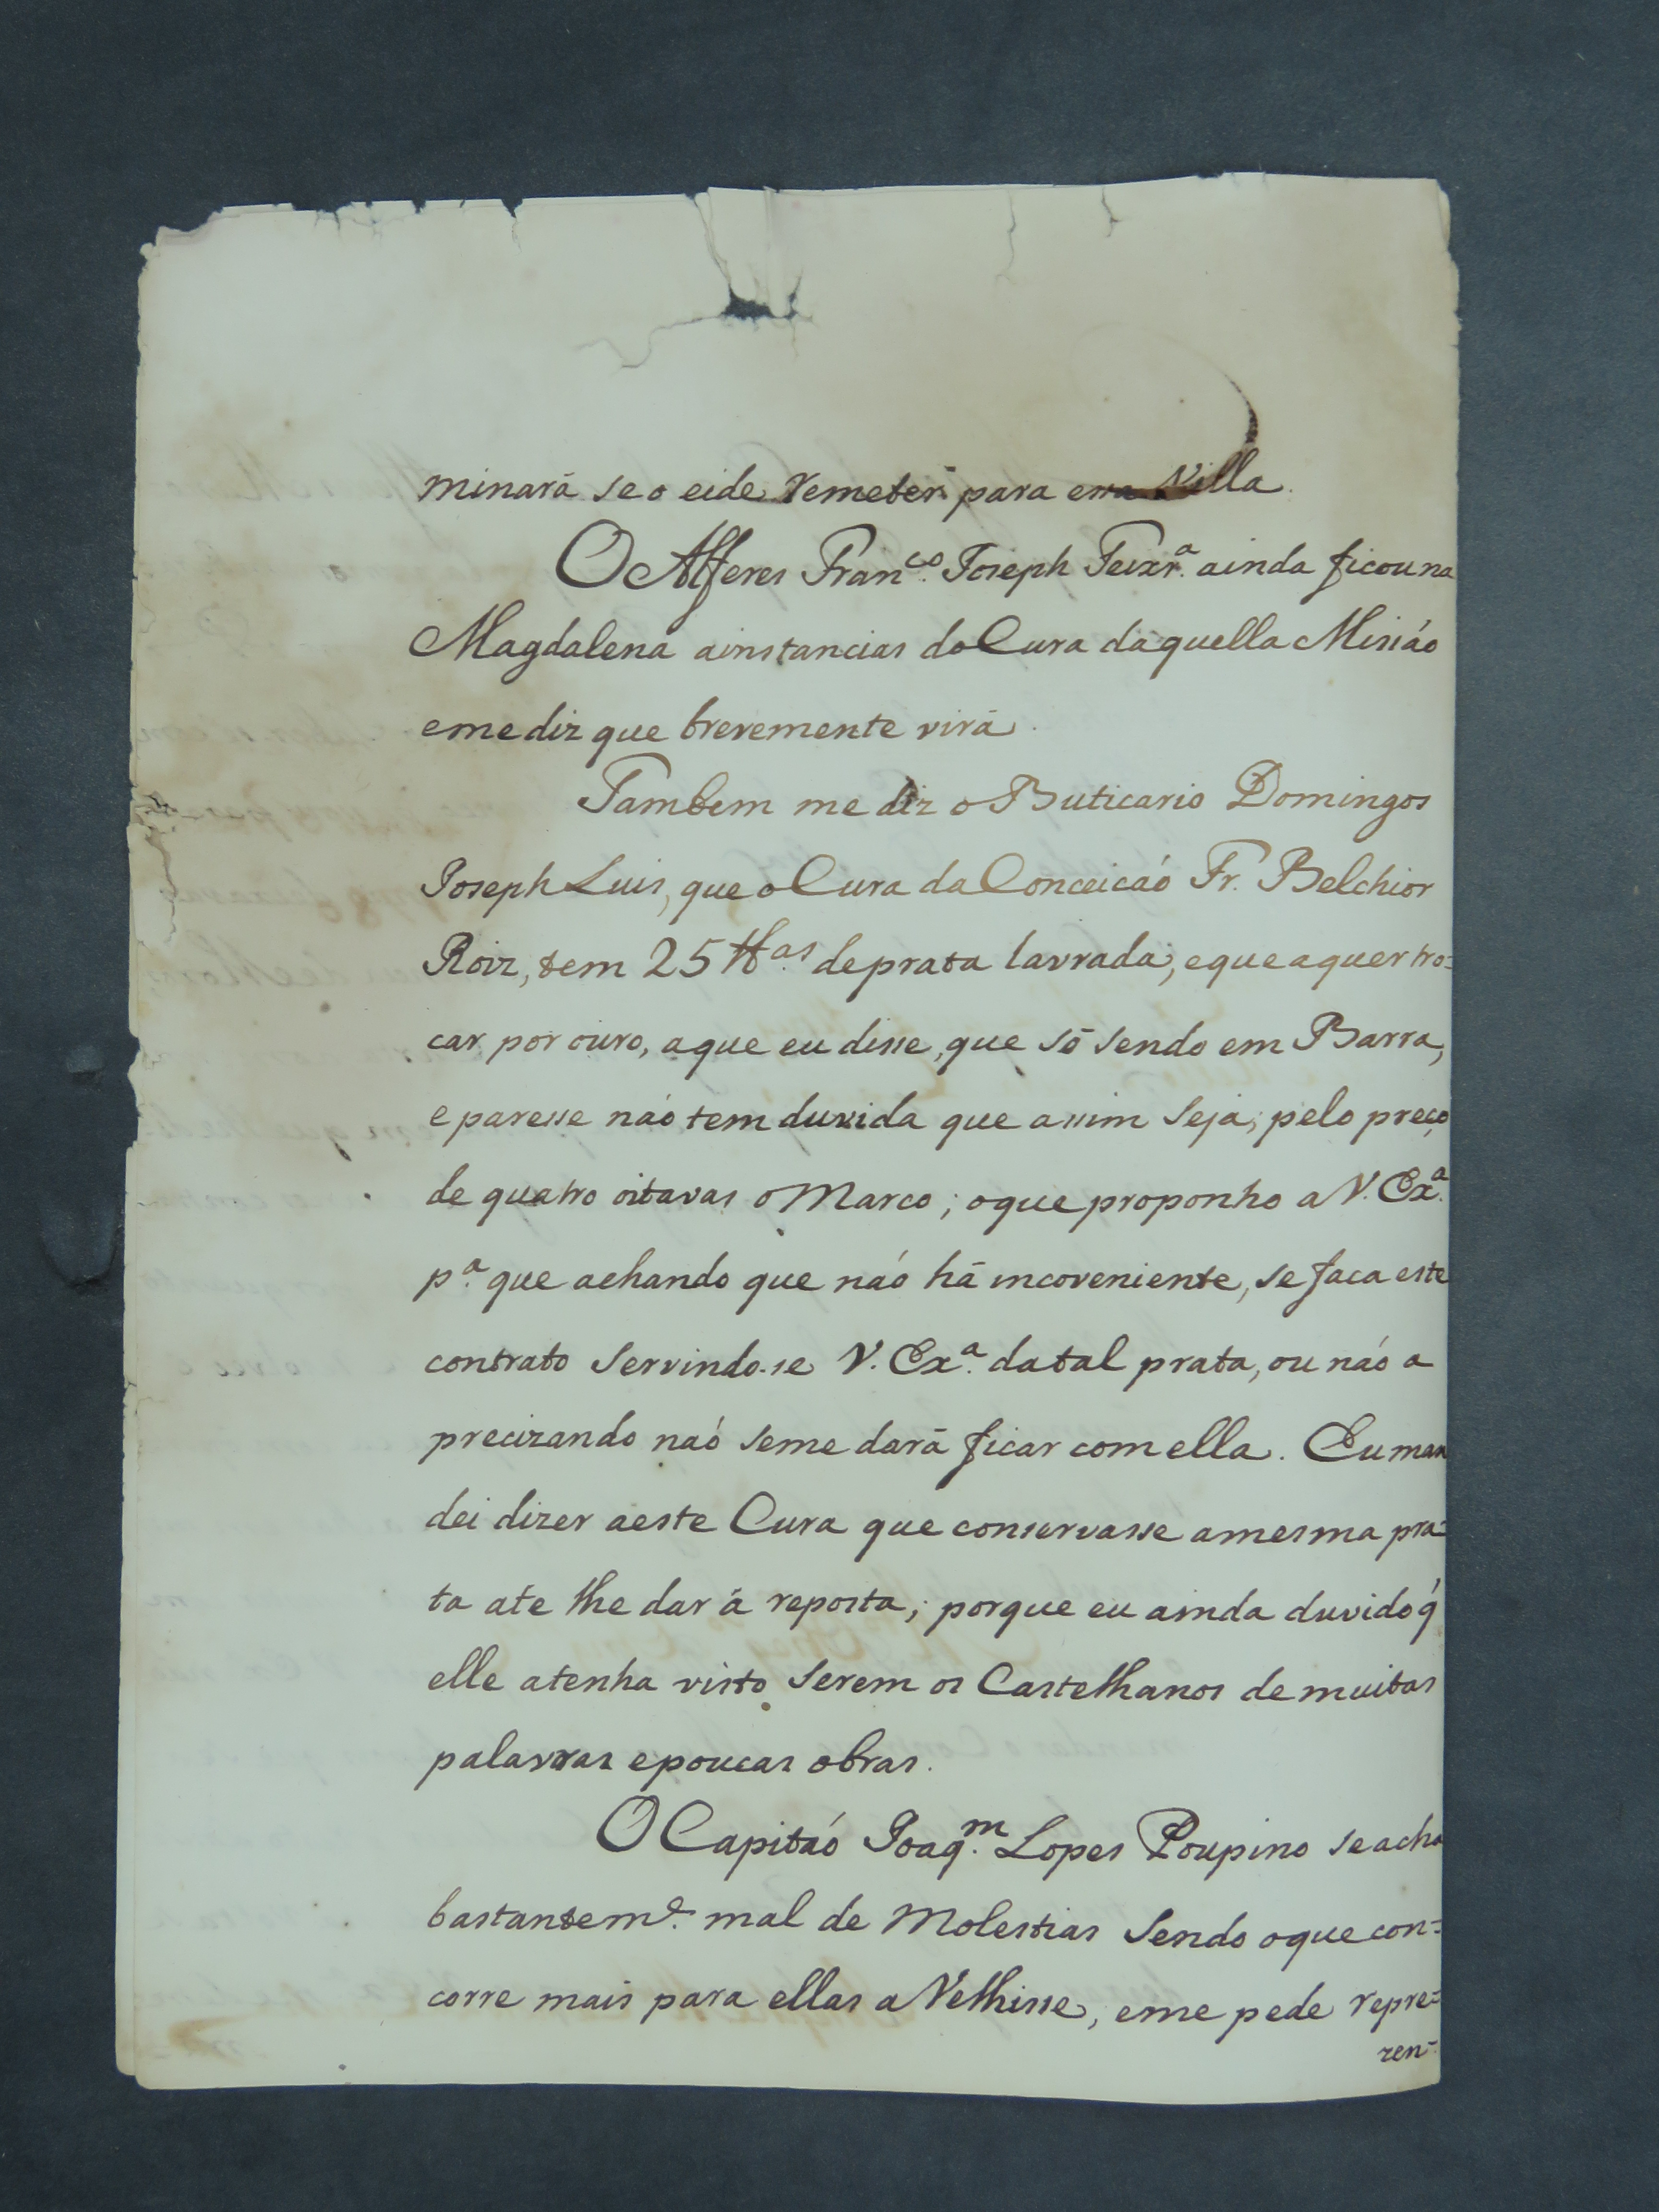 minará se o eide remeter para essa Villa.
O Alferes Fran.co Joseph Teixr.a ainda ficou na
Magdalena ainstancias do Cura daquella Missáo
eme diz que brevemente virá.
Tambem me diz o Buticario Domingos
Joseph Luis, que o Cura da Conceicáo Fr. Belchior
Roiz, tem 25 ℔.as deprata lavrada; eque aquer tro=
car por ouro, aque eu disse, que só sendo em Barra,
e paresse náo tem duvida que assim seja, pelo preço
de quatro oitavas o Marco; oque proponho a V. Ex.a
p.a que achando que náo há incoveniente, se faca este
contrato servindo-se V. Ex.a datal prata, ou náo a
precizando naó seme dará ficar comella. Eu man
dei dizer aeste Cura que conservasse amesma pra=
ta ate lhe dar á reposta; porque eu ainda duvido q̃
elle atenha visto serem os Castelhanos de muitas
palavras epoucas obras.
O Capitáo Joaq.m Lopes Poupino seacha
bastantem.e mal de Molestias sendo oque con=
corre mais para ellas a Velhisse, eme pede repre=
zen=